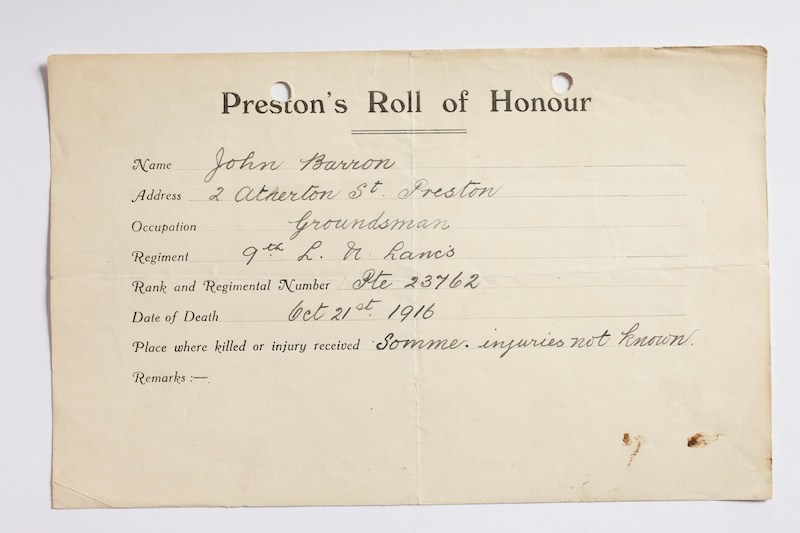 Preston's Roll of Honour
Name John Barron
Address 2 Atherton St. Preston
Occupation Groundsman
Regiment 9th L. N. Lancs
Rank and Regimental Number Pte 23762
Date of Death Oct 21st. 1916
Place where killed or injury received Somme. injuries not known.
Remarks :—